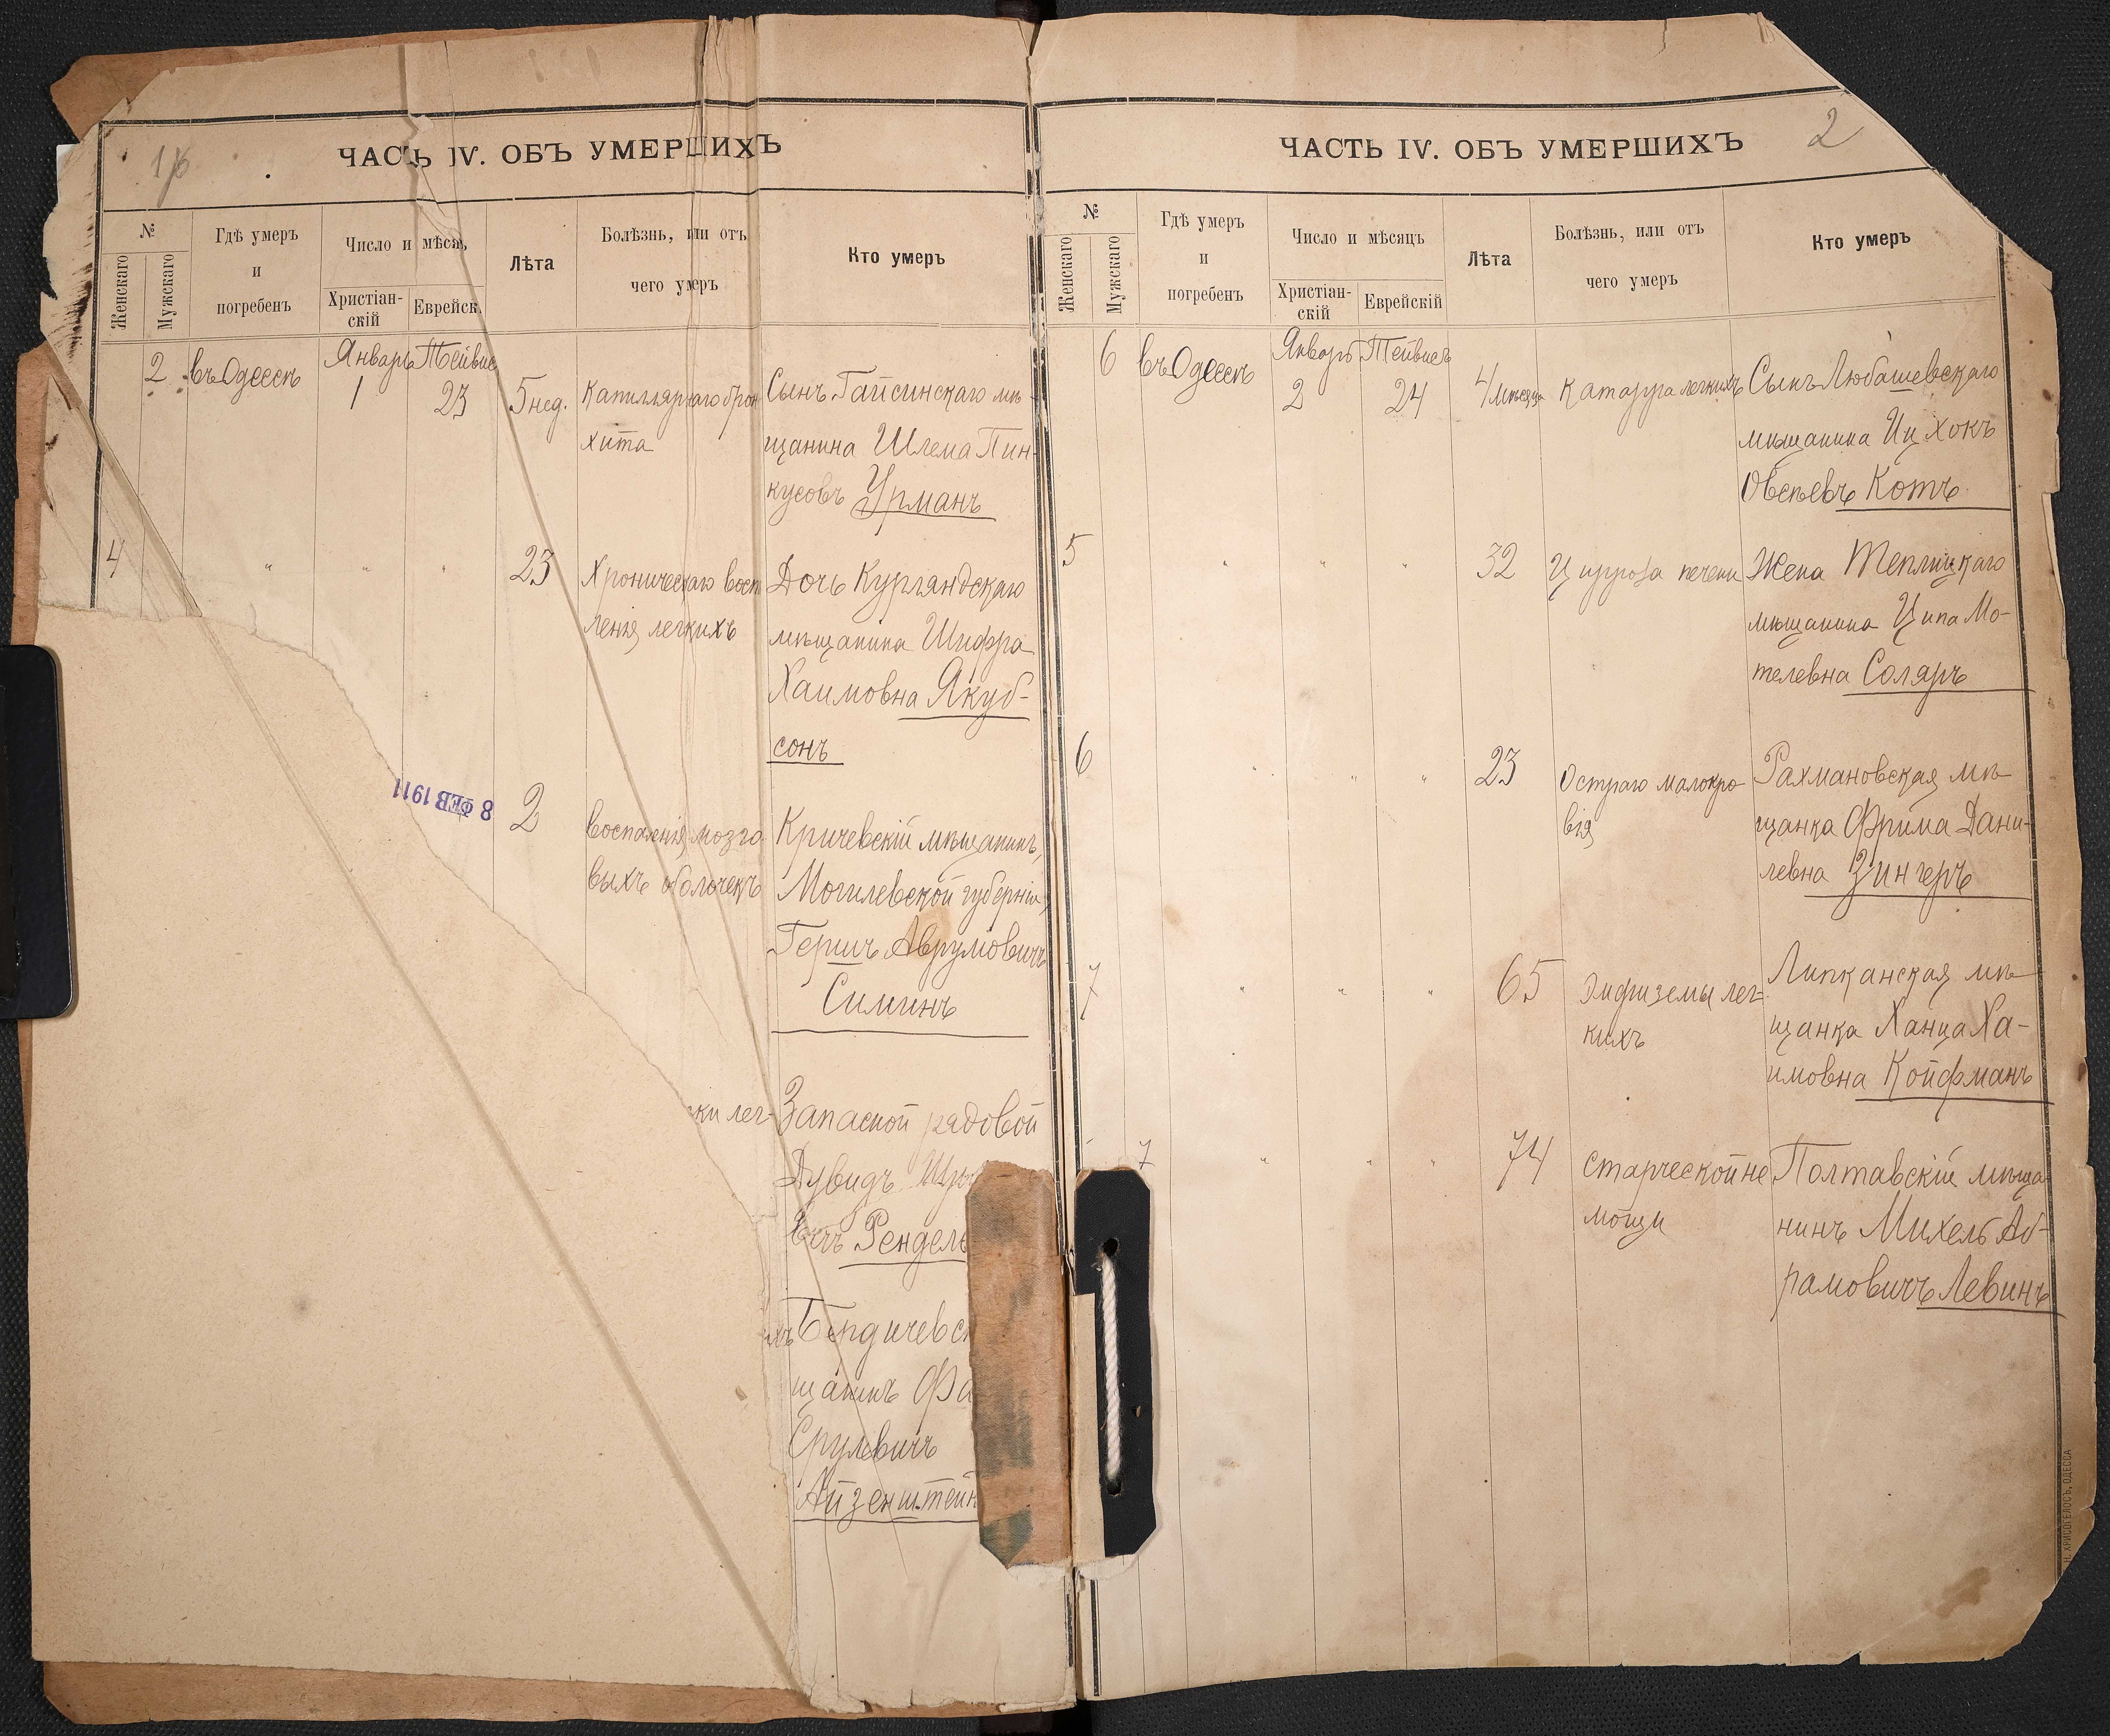 1/б
ЧАСТЬ IV. ОБЪ УМЕРШИХЪ
№
Женскаго
Мужскаго
Гдѣ умеръ
и
погребенъ
Число и мѣсяц
Христіан-
скій
Еврейск.
Лѣта
Болѣзнь, или отъ
чего умеръ
Кто умеръ
2 въ Одессѣ
Январь
1
Тейвис
23
5 нед.
Капиллярнаго брон
хита
Сынъ Гайсинскаго мѣ-
щанина Шлема Пин-
кусовъ Урманъ
4 " " "
23
Хроническаго восп
ленія легкихъ
Дочь Курляндскаго
мѣщанина Шифра
Хаимовна Якуб-
сонъ
8 ФЕВ 1911
2
воспаленія мозго-
выхъ оболочекъ
Кричевскій мѣщанинъ,
Могилевской губерніи,
Гершъ Аврумовичъ
Симинъ
ки лег-
Запасной рядовой
Дувидъ
вичъ Рендель
хъ
Бердичевск
щанинъ Фа
Срулевичъ
Айзенштейн
ЧАСТЬ IV. ОБЪ УМЕРШИХЪ
2
№
Женскаго
Мужскаго
Гдѣ умеръ
и
погребенъ
Число и мѣсяцъ
Христіан-
скій
Еврейскій
Лѣта
Болѣзнь, или отъ
чего умеръ
Кто умеръ
6 въ Одессѣ
Январь
2
Тейвисъ
24
4 мѣсяца
Катарра легкихъ
Сынъ Любашевскаго
мѣщанина Иц Хокъ
Овсѣевъ Котъ
5 " " "
32
Цирроза печени
Жена Теплицкаго
мѣщанина Ципа Мо-
телевна Соляръ
6 " " "
23
Остраго малокро-
вія
Рахмановская мѣ-
щанка Фрима Дани-
левна Зингеръ
7 " " "
65
Эмфиземы лег=
кихъ
Липканская мѣ-
щанка Ханца Ха-
имовна Койфманъ
7 " " "
74
Старческой не
мощи
Полтавскій мѣща-
нинъ Михель Аб-
рамовичъ Левинъ
Н. ХРИСОГЕЛОСЪ, ОДЕССА